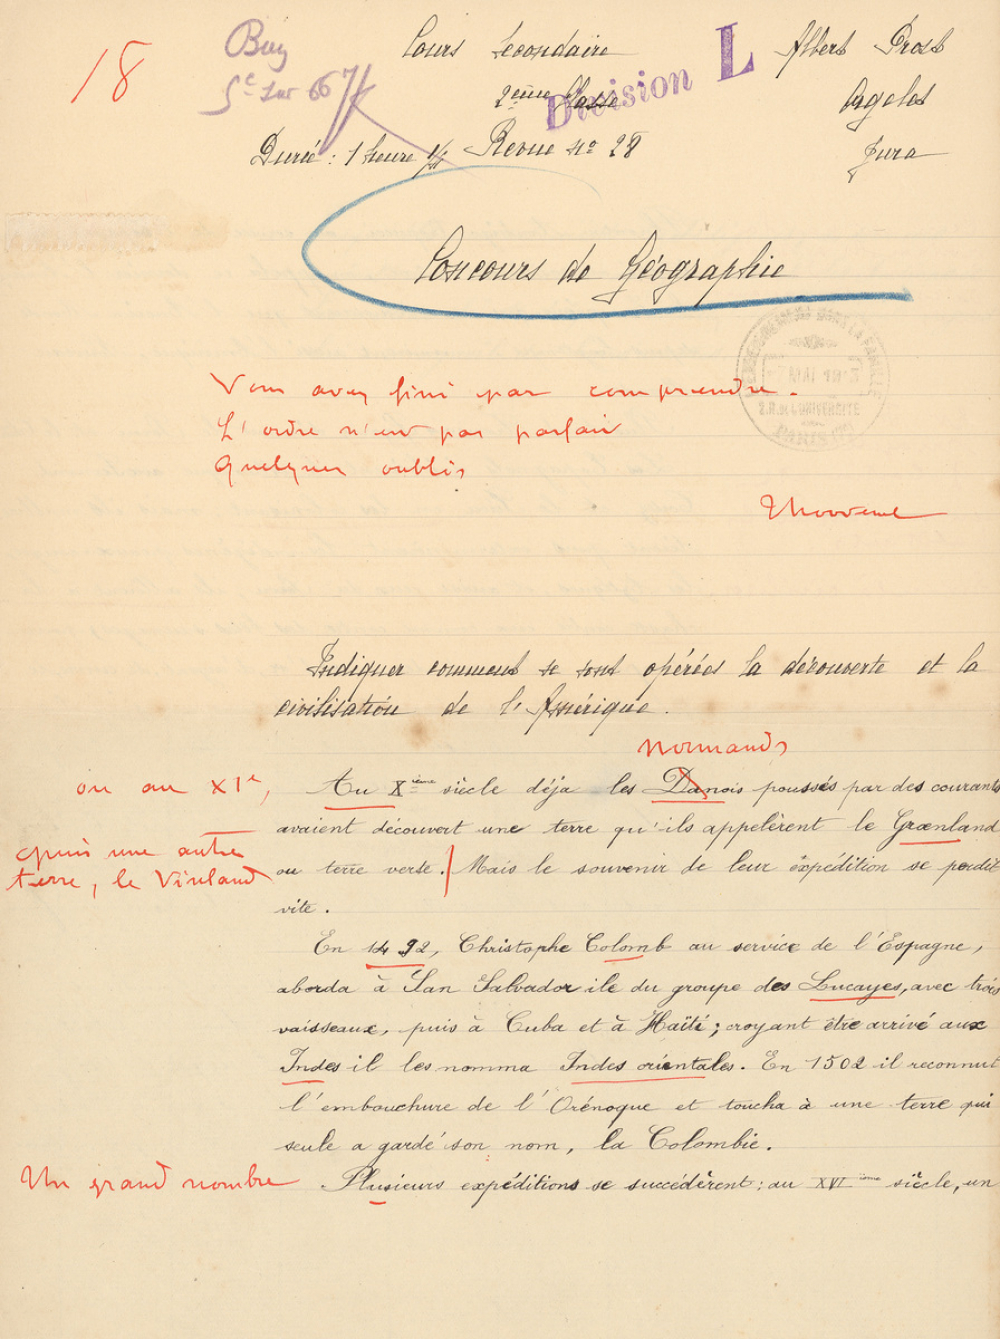 18
Bug
5e sur 667
Cours Secondaire
Division L
Albert Prost
2eme Classe
Ageles
Durée : 1 heure 1/2
Revue No 28
Jura
Concours de Géographie
L'ENSEIGNEMENT DANS LA FAMILLE
MAI
2.R. de L'UNIVERSITÉ
PARIS
Vous avez fini par comprendre.
L'ordre n'est pas parfait
Quelques oublis
Indiquer comment se sont opérées la découverte et la
civilisation de l'Amérique.
Normands
ou au XIe,
Au Xième siècle déja les Danois poussés par des courants
avaient découvert une terre qu'ils appelèrent le Grœnland
puis une autre
terre, le Vinland
ou terre verte. Mais le souvenir de leur éxpédition se perdit
vite.
En 1492, Christophe Colomb au service de l'Espagne,
aborda à San Salvador ile du groupe des Lucayes, avec trois
vaisseaux, puis à Cuba et à Haïti ; croyant être arrivé aux
Indes il les nomma Indes orientales. En 1502 il reconnut
l'embouchure de l'Orénoque et toucha à une terre qui
seule a gardé son nom, la Colombie.
Un grand nombre
Plusieurs expéditions se succédèrent : au XVIième siècle, un